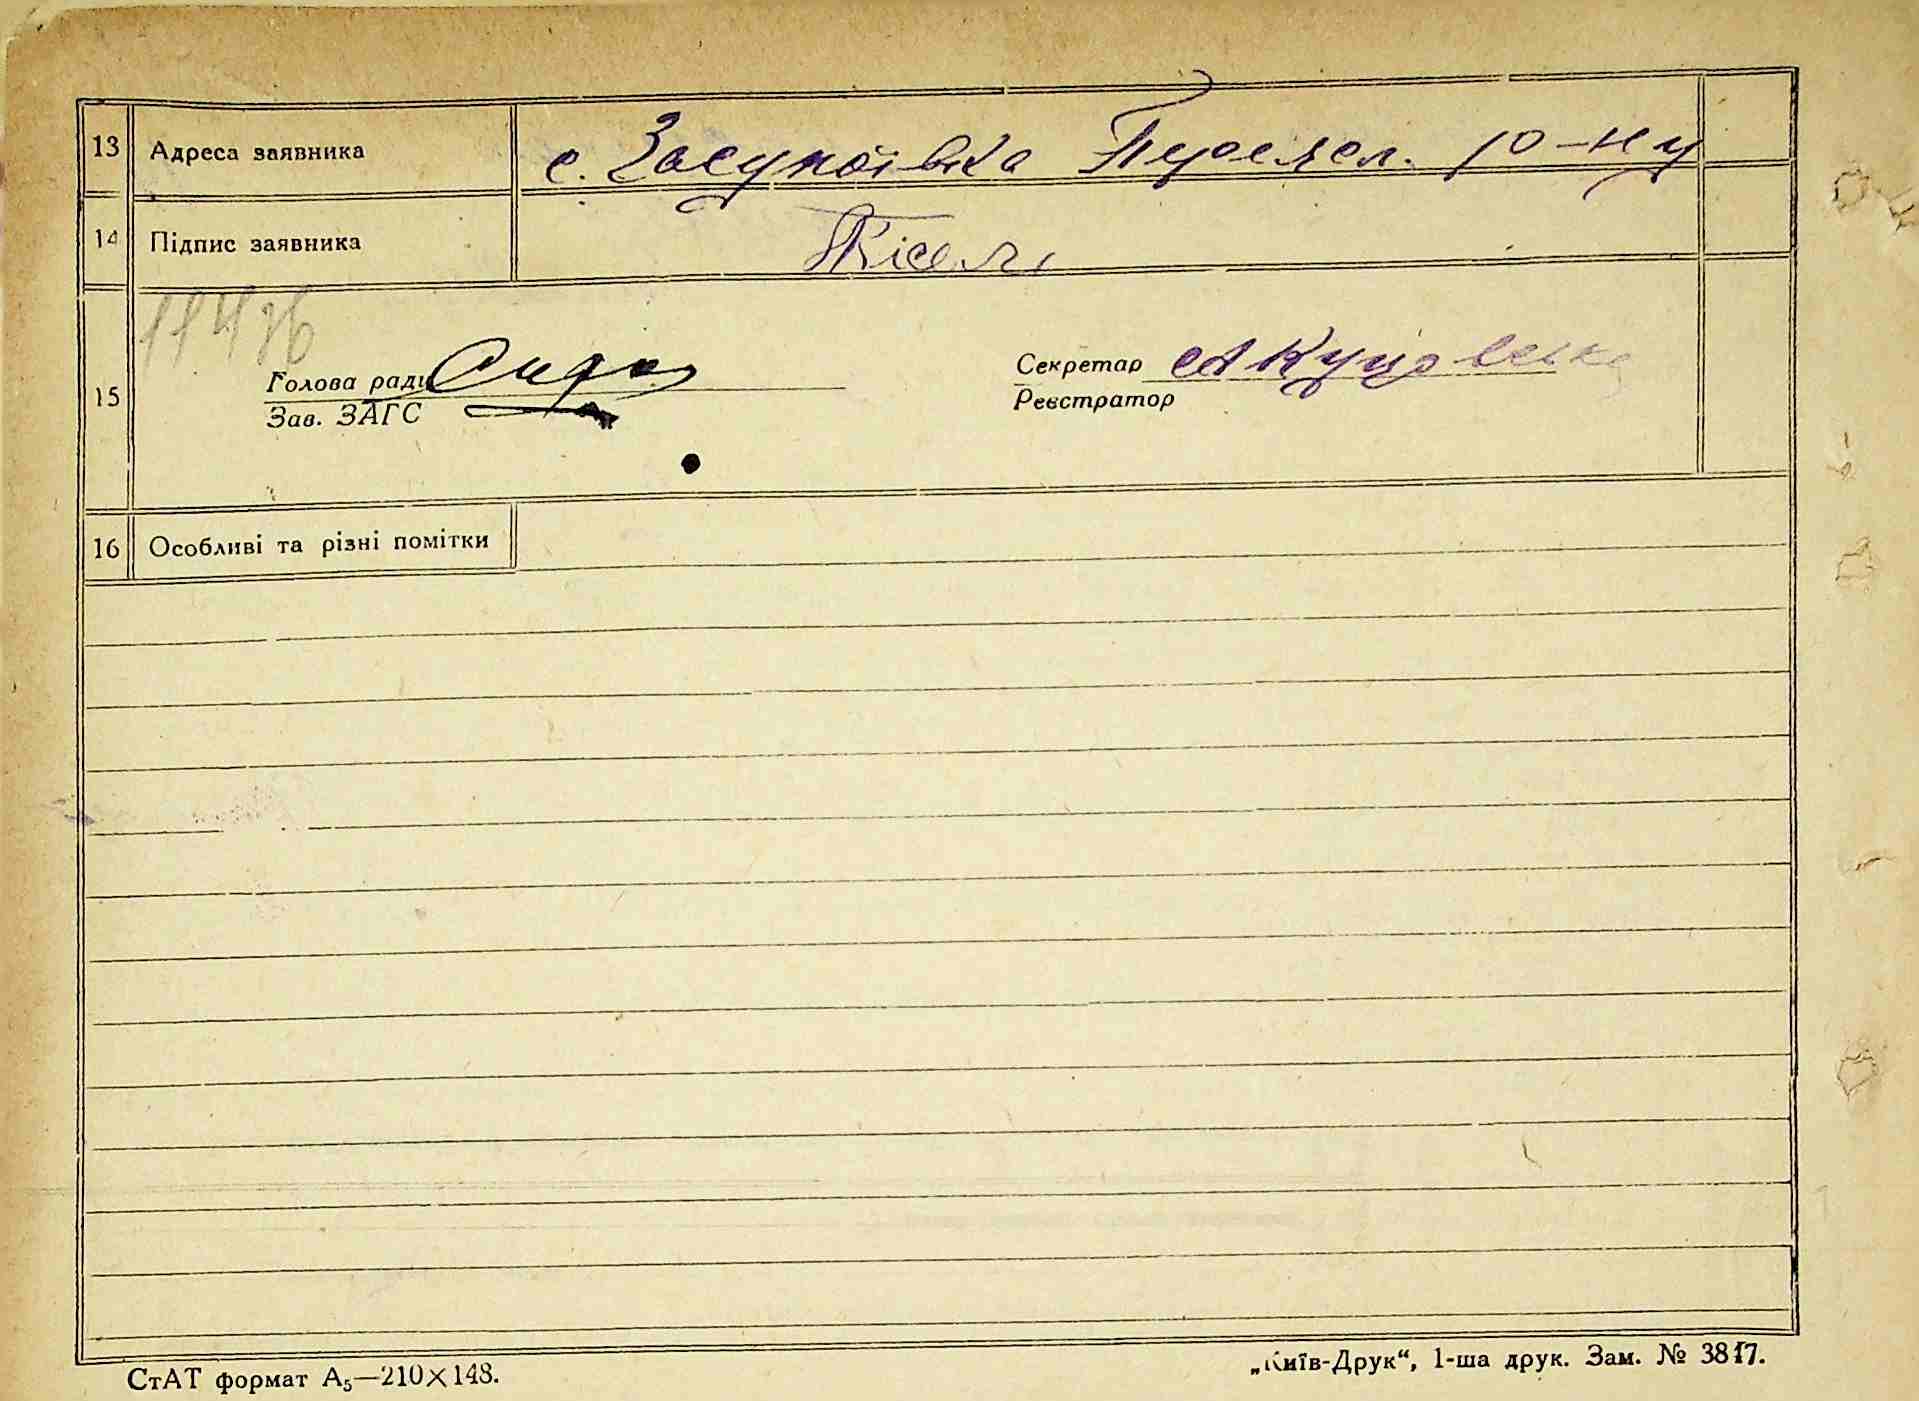 13 Адреса заявника с. Засупоївка р-ну
14 Підпис заявника
15
Голова ради Секретар
Зав. ЗАГС Реєстратор
16 Особливі та різні помітки
СтАТ формат А₅—210×148. „Київ-Друк“, 1-ша друк. Зам. № 3817.